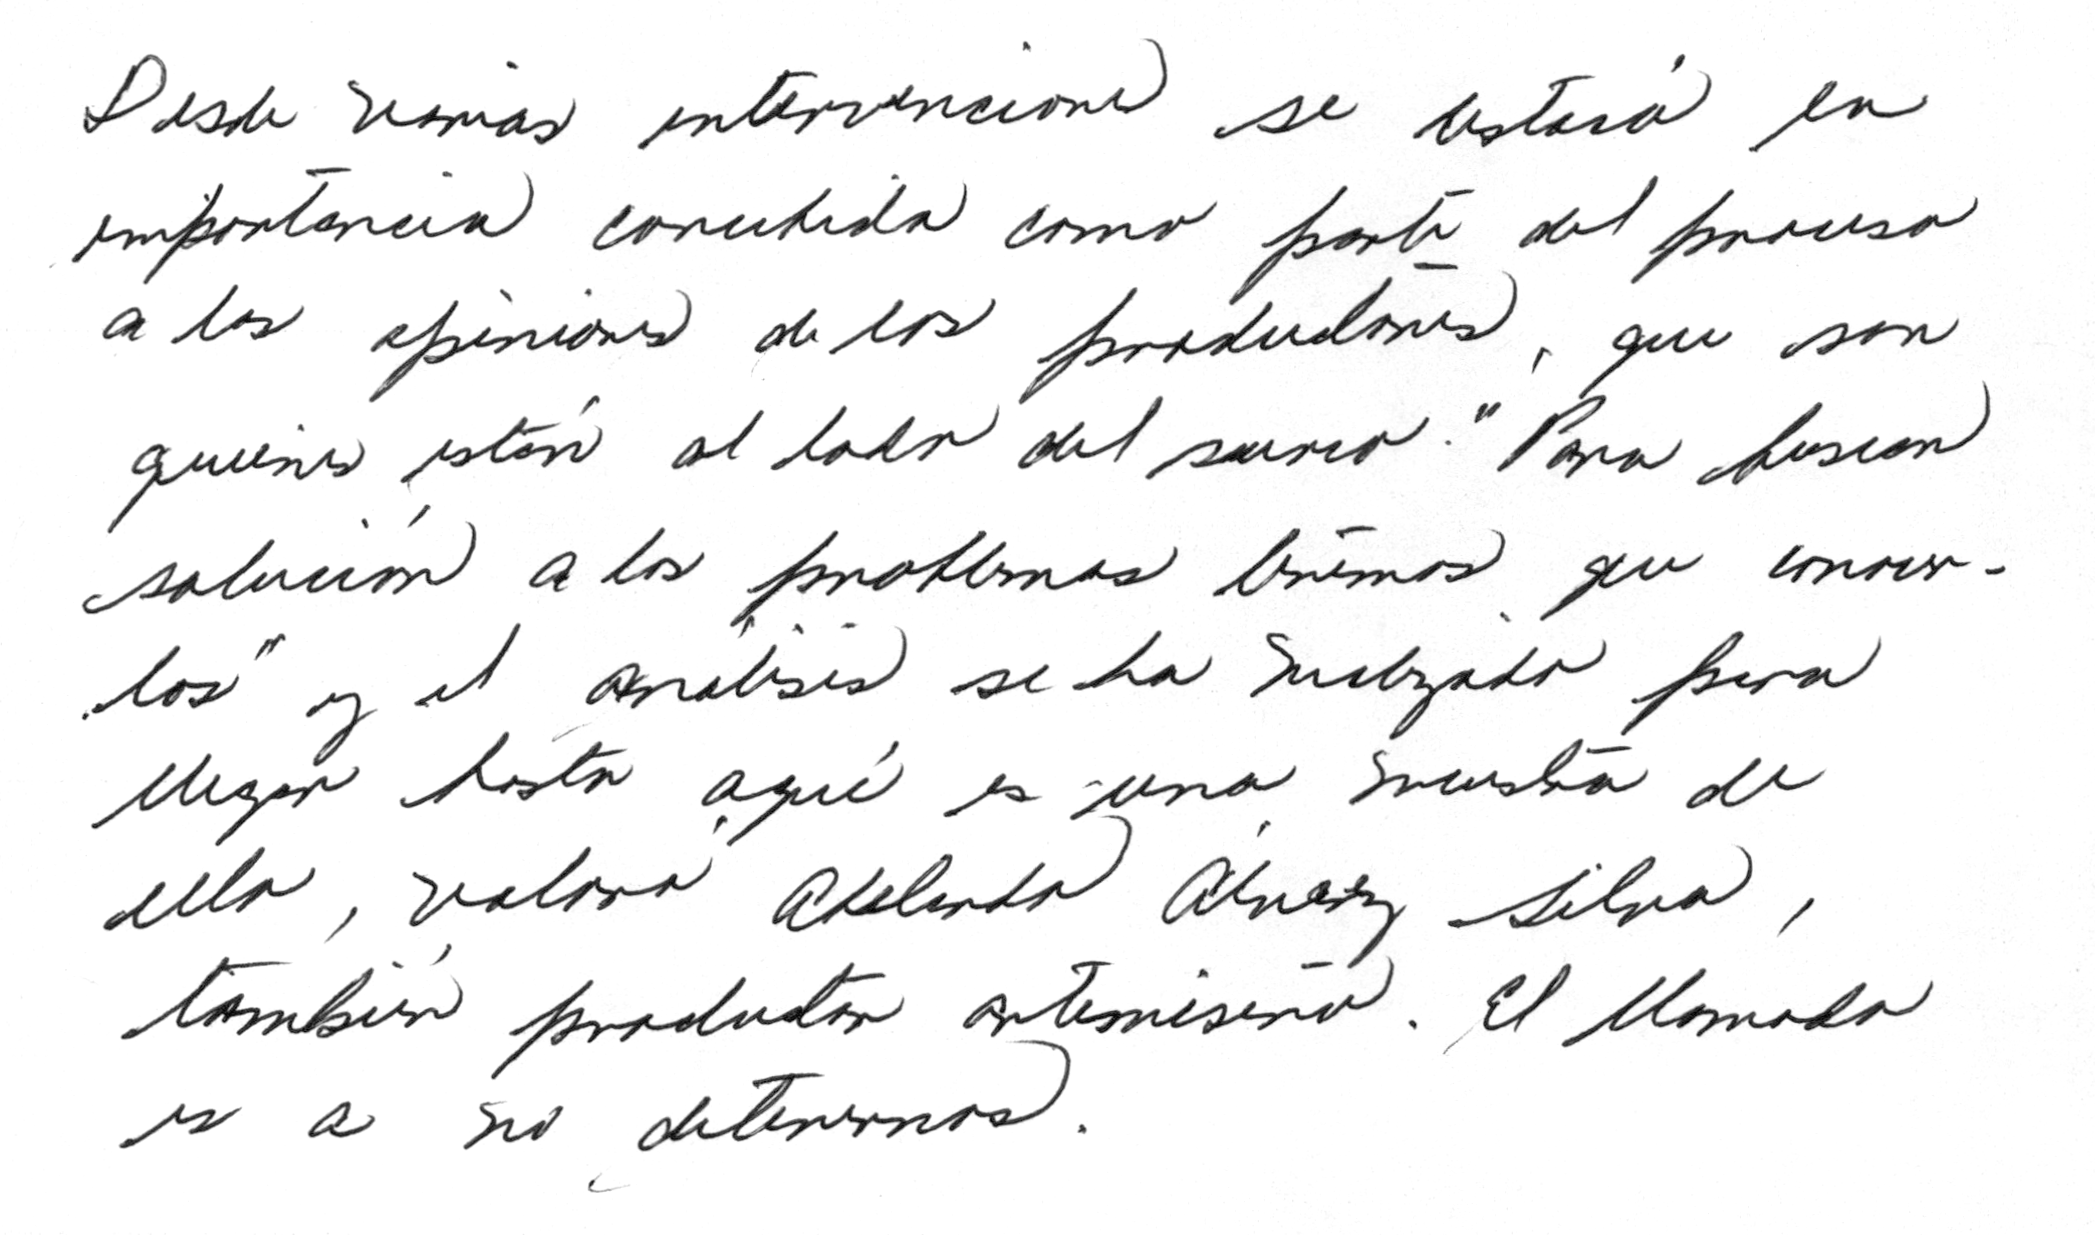 Desde varias intervenciones se estará en
importancia concedida como parte del proceso
a las opiniones de los productores, que son
quienes están al lado del surco. "Para buscar
solución a los problemas tenemos que conocer-
los" y el análisis se ha realizado para
llegar hasta aquí es una muestra de
ello, valora Adelardo Álvarez Silva,
también productor artemiseño. El llamado
es a no detenernos.